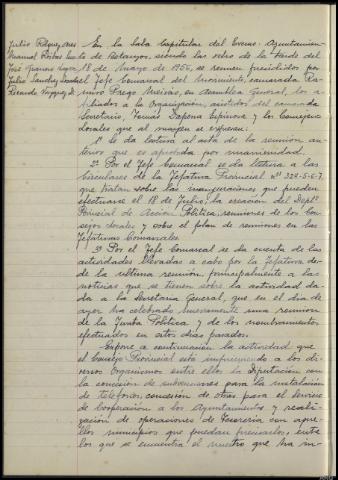 En la Sala Capitular del Excmo. Ayuntamien-
to de Betanzos, siendo las ocho de la tarde del
18 de Marzo de 1956, se reunen presididos por
el Jefe Comarcal del Movimiento, camarada
Prego Meirás, en Asamblea General, los a-
filiados a la Organización, asistidos del camarada
Secretario, Tomás Dapena Espinosa y los Consejeros
Locales que al margen se expresan.
1º Se da lectura al acta de la reunión an-
terior que es aprobada por unanimidad.
2º Por el Jefe Comarcal se da lectura a las
Circulares de la Jefatura Provincial nº 324-5-6-7,
que tratan sobre las inauguraciones que pueden
efectuarse el 18 de Julio, la creación del Deptº
Provincial de Acción Política, reuniones de los Con-
sejos Locales y sobre el plan de reuniones en las
Jefaturas Comarcales.
3º Por el Jefe Comarcal se da cuenta de las
actividades llevadas a cabo por la Jefatura des-
de la última reunión, principalmente a las
noticias que se tienen sobre la actividad da-
da a la Secretaría General, que en el día de
ayer ha celebrado nuevamente una reunión
de la Junta Política y de los nombramientos
efectuados en estos días pasados.
Expone a continuación la actividad que
el Consejo Provincial está imprimiendo a los di-
versos Organismos entre ellos la Diputación con
la concesión de subvenciones para la instalación
de teléfonos, concesión de otras para el Servicio
de Cooperación a los Ayuntamientos y reali-
zación de operaciones de Tesorería con aque-
llos municipios que puedan precisarlos, entre
los que se encuentra el nuestro que ha in-
Julio
Manuel
José
Julio Sánchez
Ricardo